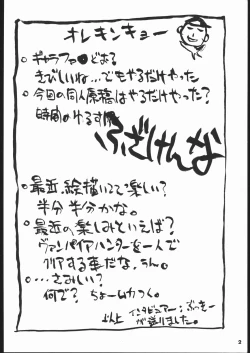 オレキンキョー
○ギャラファ○どおる
きびしいね…でもやるだけやった
○今回の同人原稿はやるだけやった?
時間○ゆるす
ふざけんな
○最近、絵描いてて楽しい?
半分半分かな。
○最近の楽しみといえば?
ヴァンパイアハンターを一人で
クリアする事だな、うん。
○…さみしい?
何で? ちょームカつく。
以上 インタビュアー:ぶっきー
が送りました。
2